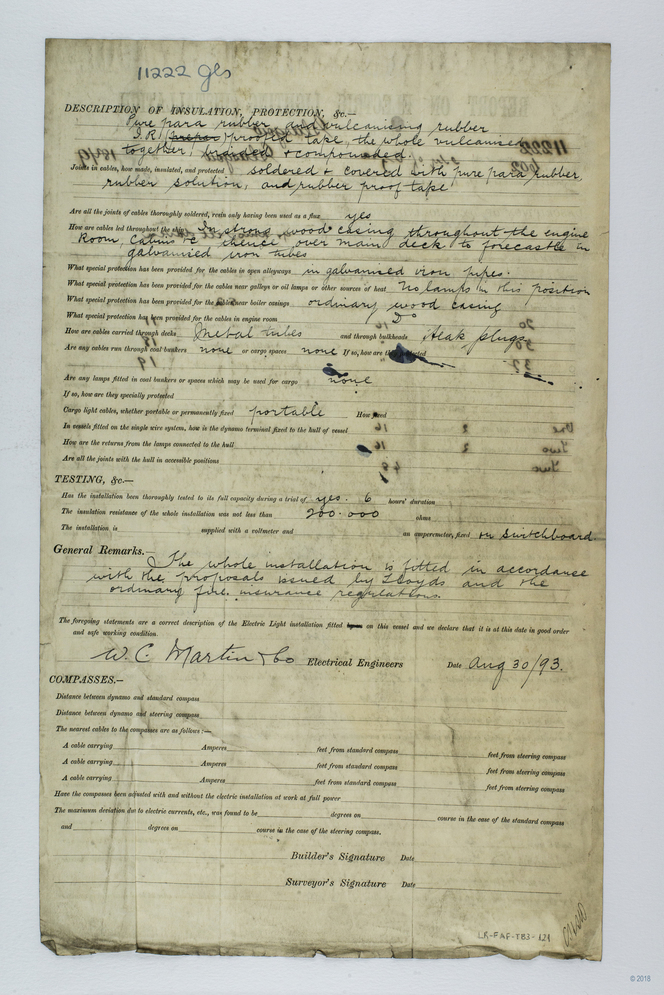 11222 Gls
DESCRIPTION OF INSULATION, PROTECTION, &c.—
Pure para rubber and vulcanising rubber
I.R. proofed tape, the whole vulcanised
together, braided & compounded.
Joints in cables, how made, insulated, and protected soldered & covered with pure para rubber,
rubber solution, and rubber proof tape
Are all the joints of cables thoroughly soldered, resin only having been used as a flux yes
How are cables led throughout the ship In strong wood casing throughout the engine
Room, Cabins &c thence over main deck to forecastle in
galvanised iron tubes
What special protection has been provided for the cables in open alleyways in galvanised iron pipes.
What special protection has been provided for the cables near galleys or oil lamps or other sources of heat No lamps in this position
What special protection has been provided for the cables near boiler casings ordinary wood casing
What special protection has been provided for the cables in engine room Do
How are cables carried through decks Metal tubes and through bulkheads teak plugs
Are any cables run through coal bunkers none or cargo spaces none If so, how are they protected
Are any lamps fitted in coal bunkers or spaces which may be used for cargo none
If so, how are they specially protected
Cargo light cables, whether portable or permanently fixed portable How fixed
In vessels fitted on the single wire system, how is the dynamo terminal fixed to the hull of vessel
How are the returns from the lamps connected to the hull
Are all the joints with the hull in accessible positions
TESTING, &c.—
Has the installation been thoroughly tested to its full capacity during a trial of yes. 6 hours' duration
The insulation resistance of the whole installation was not less than 200.000 ohms
The installation is supplied with a voltmeter and an amperemeter, fixed on Switchboard.
General Remarks.—
The whole installation is fitted in accordance
with the proposals issued by Lloyds and the
ordinary fire insurance regulations.
The foregoing statements are a correct description of the Electric Light installation fitted on this vessel and we declare that it is at this date in good order
and safe working condition.
W. C. Martin & Co Electrical Engineers Date Aug 30/93.
COMPASSES.—
Distance between dynamo and standard compass
Distance between dynamo and steering compass
The nearest cables to the compasses are as follows:—
A cable carrying Amperes feet from standard compass feet from steering compass
A cable carrying Amperes feet from standard compass feet from steering compass
A cable carrying Amperes feet from standard compass feet from steering compass
Have the compasses been adjusted with and without the electric installation at work at full power
The maximum deviation due to electric currents, etc., was found to be degrees on course in the case of the standard compass
and degrees on course in the case of the steering compass.
Builder's Signature Date
Surveyor's Signature Date
LR-FAF-TB3-121
© 2018